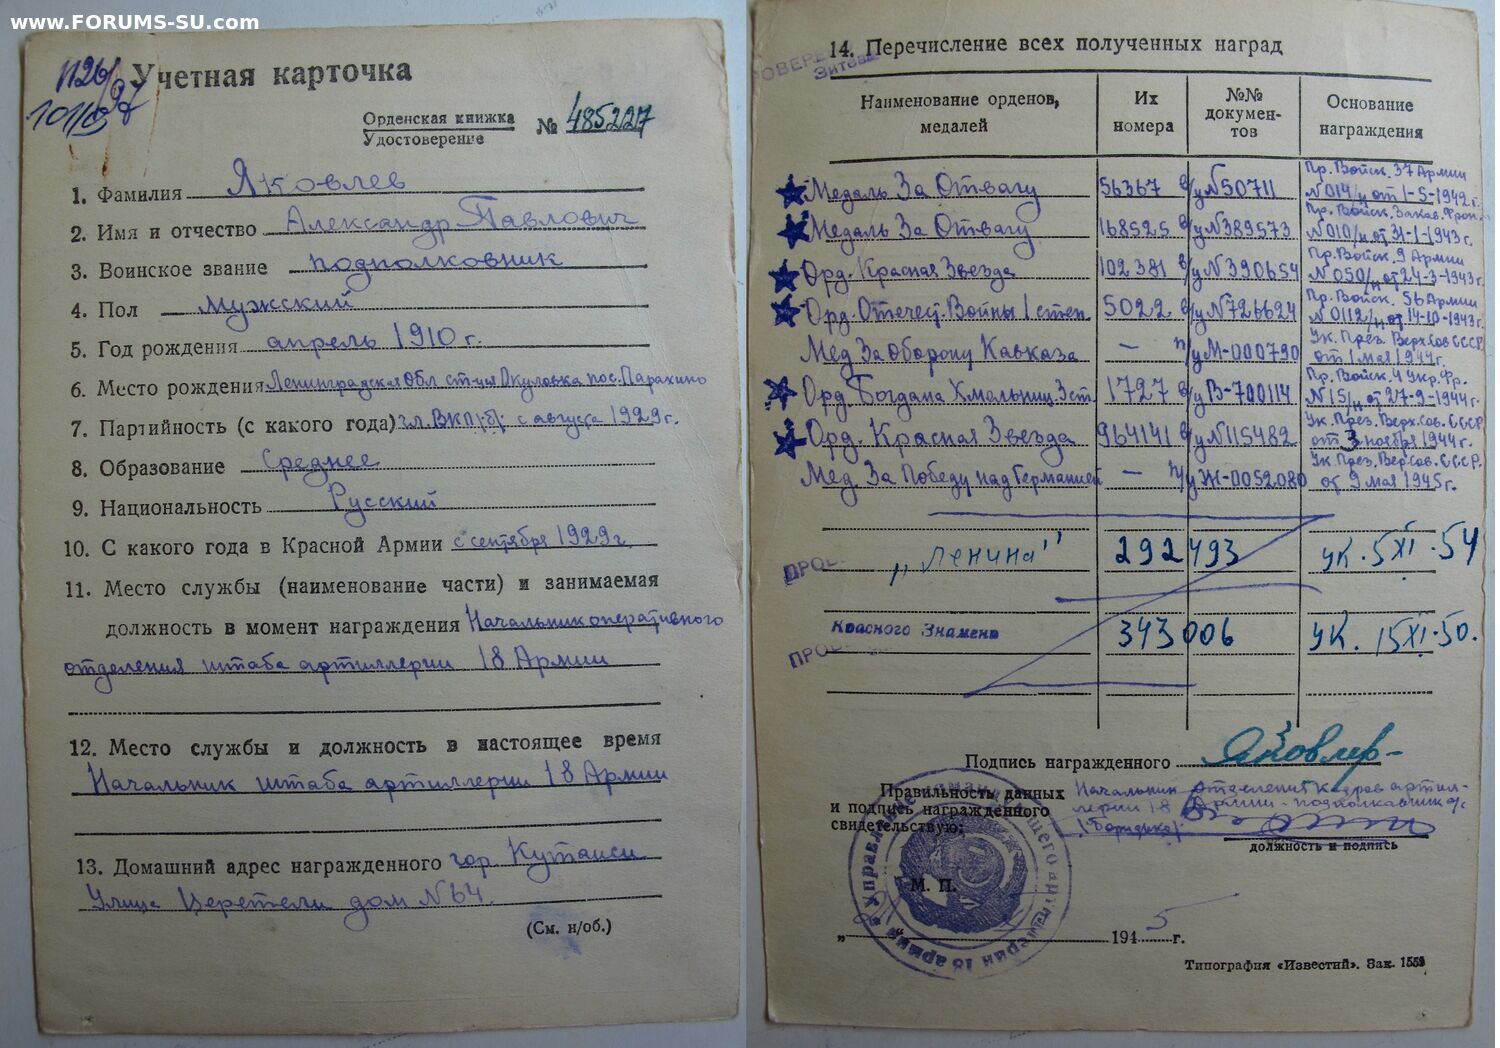 www.FORUMS-SU.com
Учетная карточка
Орденская книжка
Удостоверение
№ 485227
1. Фамилия Яковлев
2. Имя и отчество Александр Павлович
3. Воинское звание подполковник
4. Пол мужский
5. Год рождения апрель 1910 г.
6. Место рождения Ленинградская Обл ст-ция Окуловка пос. Парахино
7. Партийность (с какого года) чл. ВКП(б) с августа 1929 г.
8. Образование Среднее
9. Национальность Русский
10. С какого года в Красной Армии с сентября 1929 г.
11. Место службы (наименование части) и занимаемая
должность в момент награждения Начальник оперативного
отделения штаба артиллерии 18 Армии
12. Место службы и должность в настоящее время
Начальник штаба артиллерии 18 Армии
13. Домашний адрес награжденного гор. Кутаиси
Улица Церетели дом № 64.
(См. н/об.)
14. Перечисление всех полученных наград
Наименование орденов, медалей
Их номера
№№ документов
Основание награждения
Медаль За Отвагу 56367 в/у № 50711 Пр. Войск. 37 Армии № 014/н от 1-5-1942 г.
Медаль За Отвагу 168525 в/у № 389573 Пр. Войск. Закав. Фрон. № 010/н от 31-1-1943 г.
Орд. Красная Звезда 102381 в/у № 390654 Пр. Войск. 9 Армии № 050/н от 24-3-1943 г.
Орд. Отечест. Войны 1 степ. 5022 в/у № 726624 Пр. Войск. 56 Армии № 0112/н от 14-10-1943 г.
Мед За Оборону Кавказа — п/у М-000790 Ук. През. Верх. Сов СССР от 1 мая 1944 г.
Орд Богдана Хмельниц. 3 ст. 1727 в/у В-700114 Пр. Войск. 4 Укр. Фр. № 15/н от 27-9-1944 г.
Орд. Красная Звезда 964141 в/у № 115482 Ук. През. Верх. Сов. СССР от 3 ноября 1944 г.
Мед. За Победу над Германией — п/у Ж-0052080 Ук През. Вер. Сов. СССР. от 9 мая 1945 г.
„Ленина" 292493 ук. 5 XI. 54
Красного Знамени 343006 ук. 15 XI. 50.
Подпись награжденного Яковлев
Правильность данных
и подпись награжденного
свидетельствую:
Начальник отделения кадров артил-
лерии 18 Армии - подполковник а/с
должность и подпись
М. П.
„ “ 1945 г.
Типография «Известий». Зак. 1553